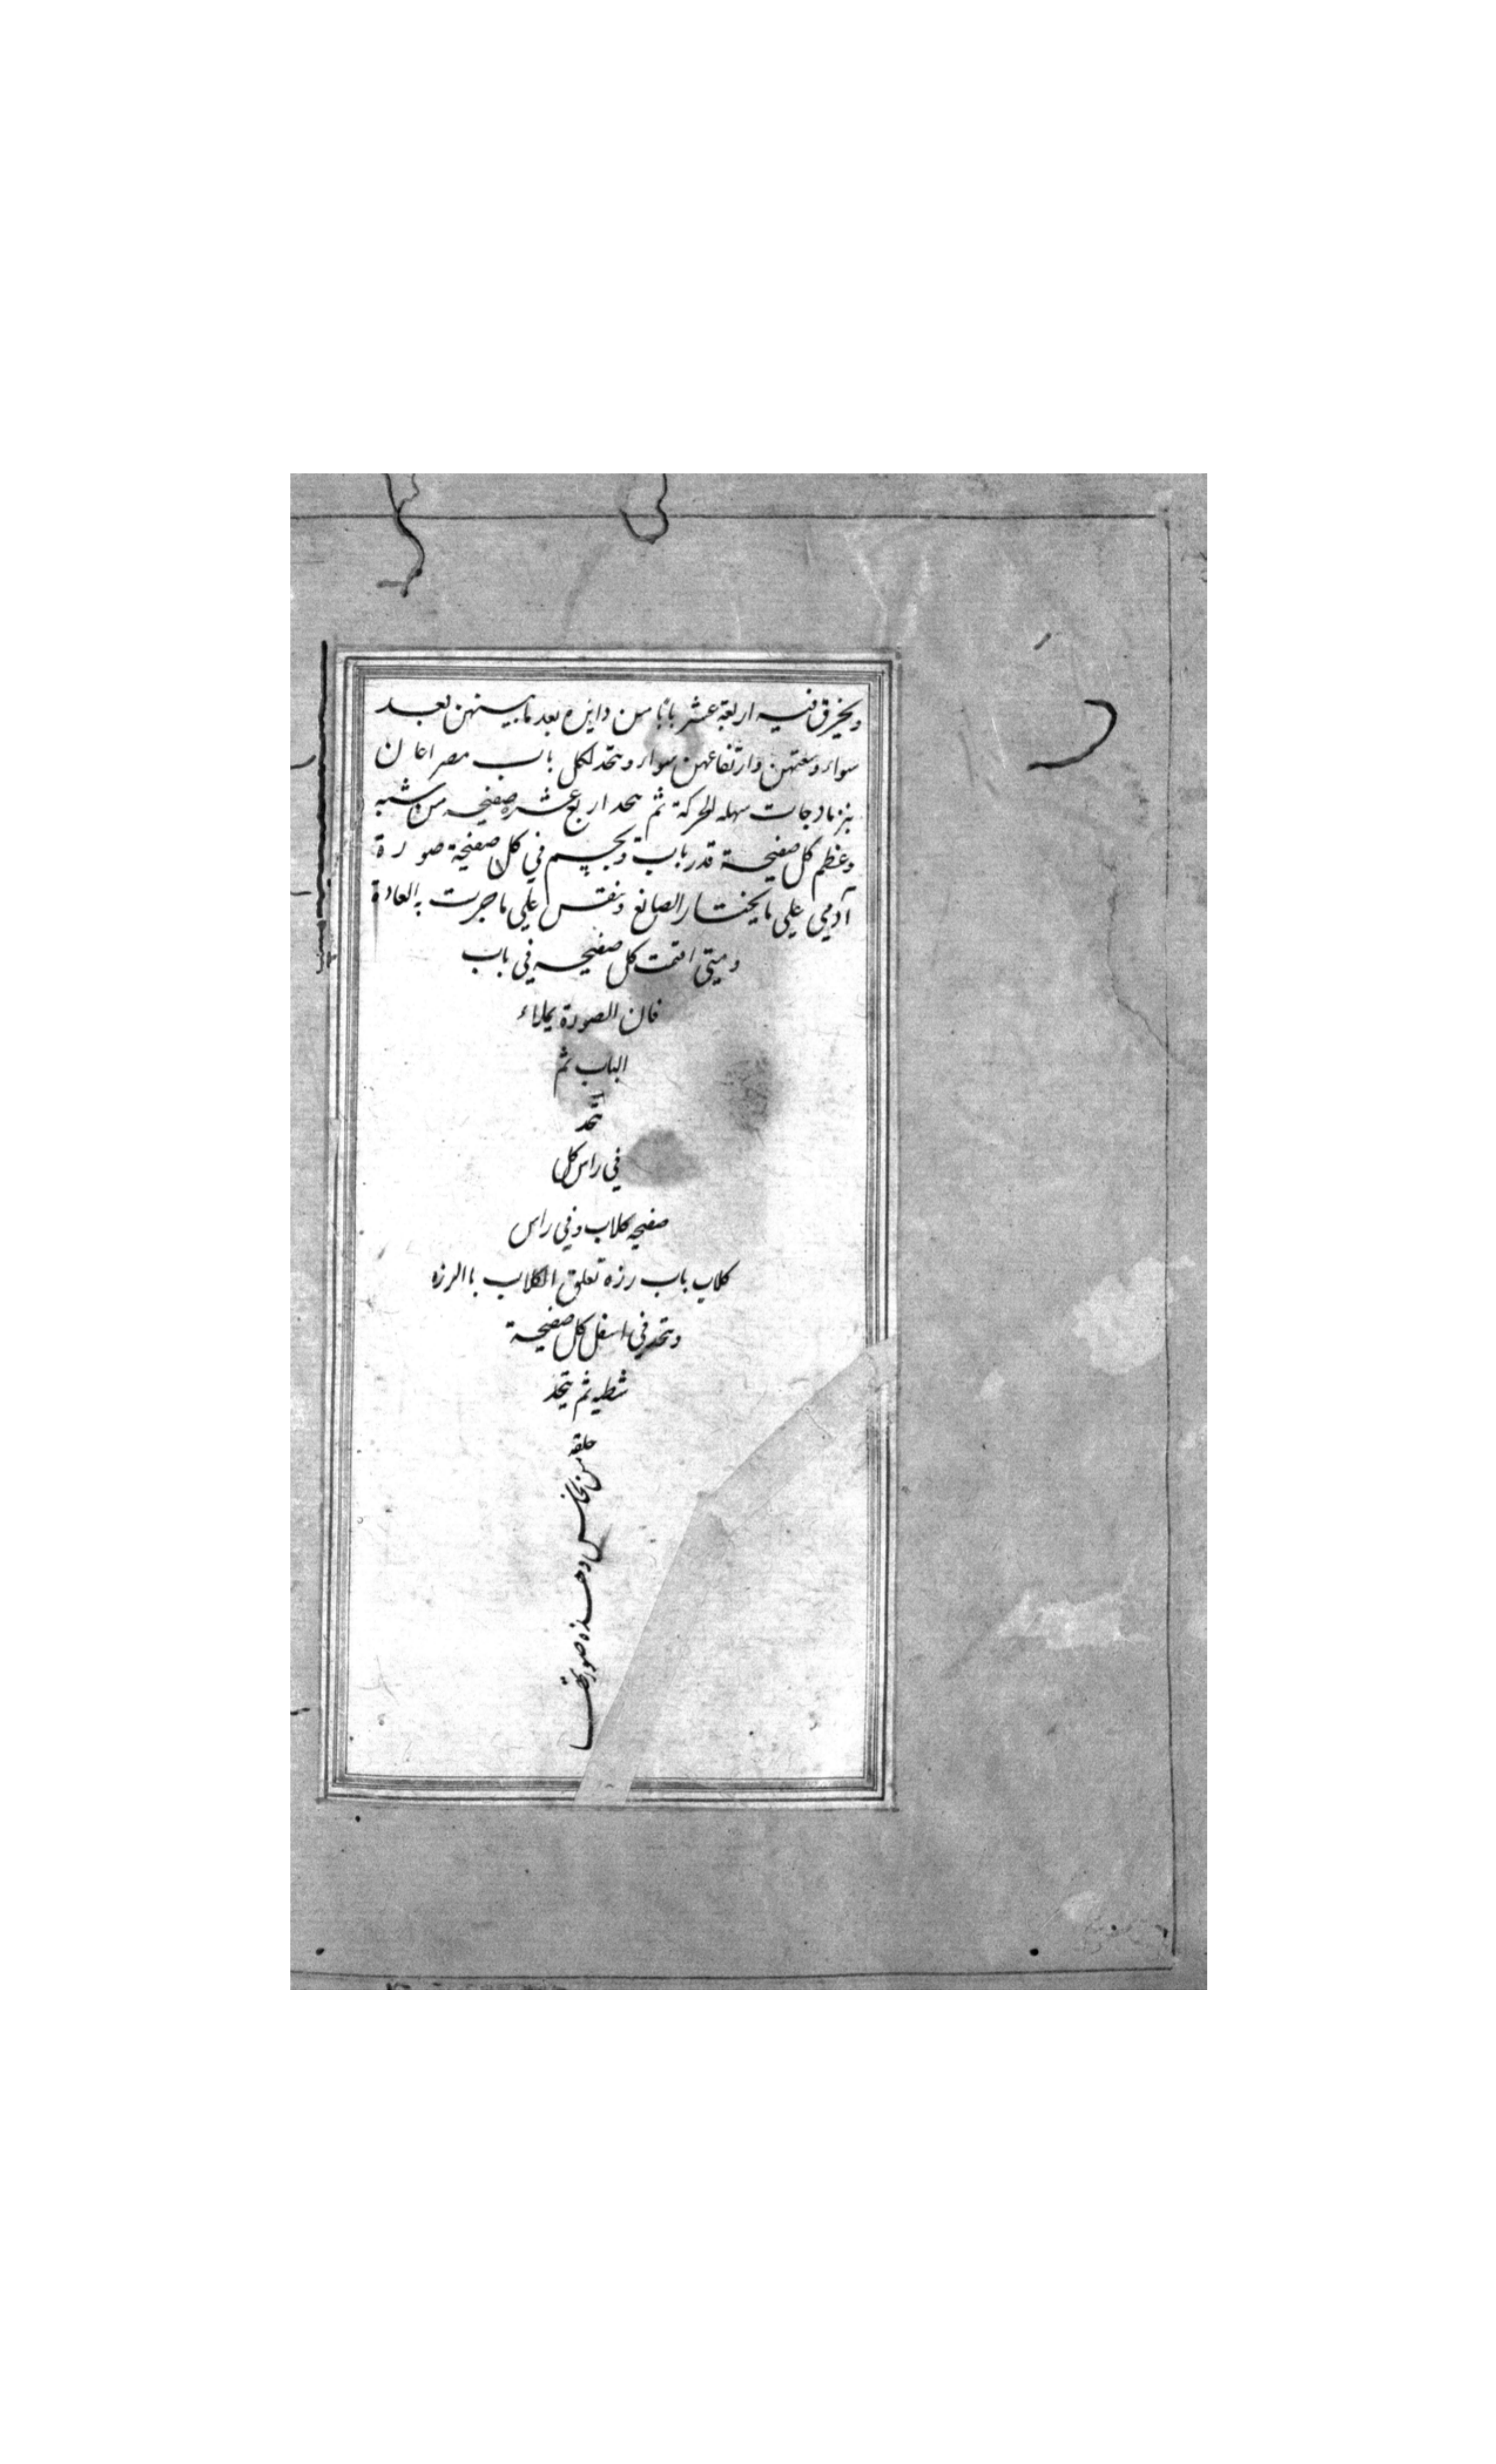 ويخرق فيه اربعة عشر بابا من دايره بعد ما بينهن بعد
سواء وسعتهن وارتفاعهن سواء ويتخد لكل باب مصراعان
بنرمادجات سهله الحركة ثم يتحد اربع عشره صفيحه من شبه
وعظم كل صفيحة قدر باب ويجسم في كل صفيحة صورة
آدمي علي ما يختار الصانع وينقس علي ما جرت به العادة
ومتي اقتمت كل صفيحه في باب
فان الصورة يملاء
الباب ثم
يتخد
في راس كل
صفيحه كلاب وفي راس
كلاب باب رزه تعلق الكلاب باالرزه
ويتخد في اسفل كل صفيحة
شطيه ثم يتخذ
حلقه
من نحاس وهذه صورتها